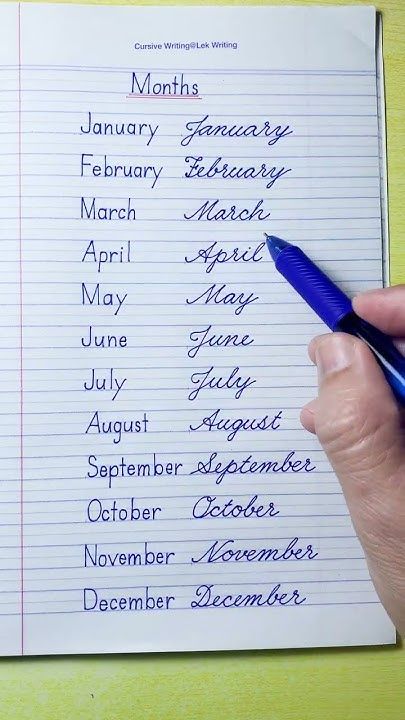 Cursive Writing@Lek Writing
Months
January January
February February
March March
April April
May May
June June
July July
August August
September September
October October
November November
December December